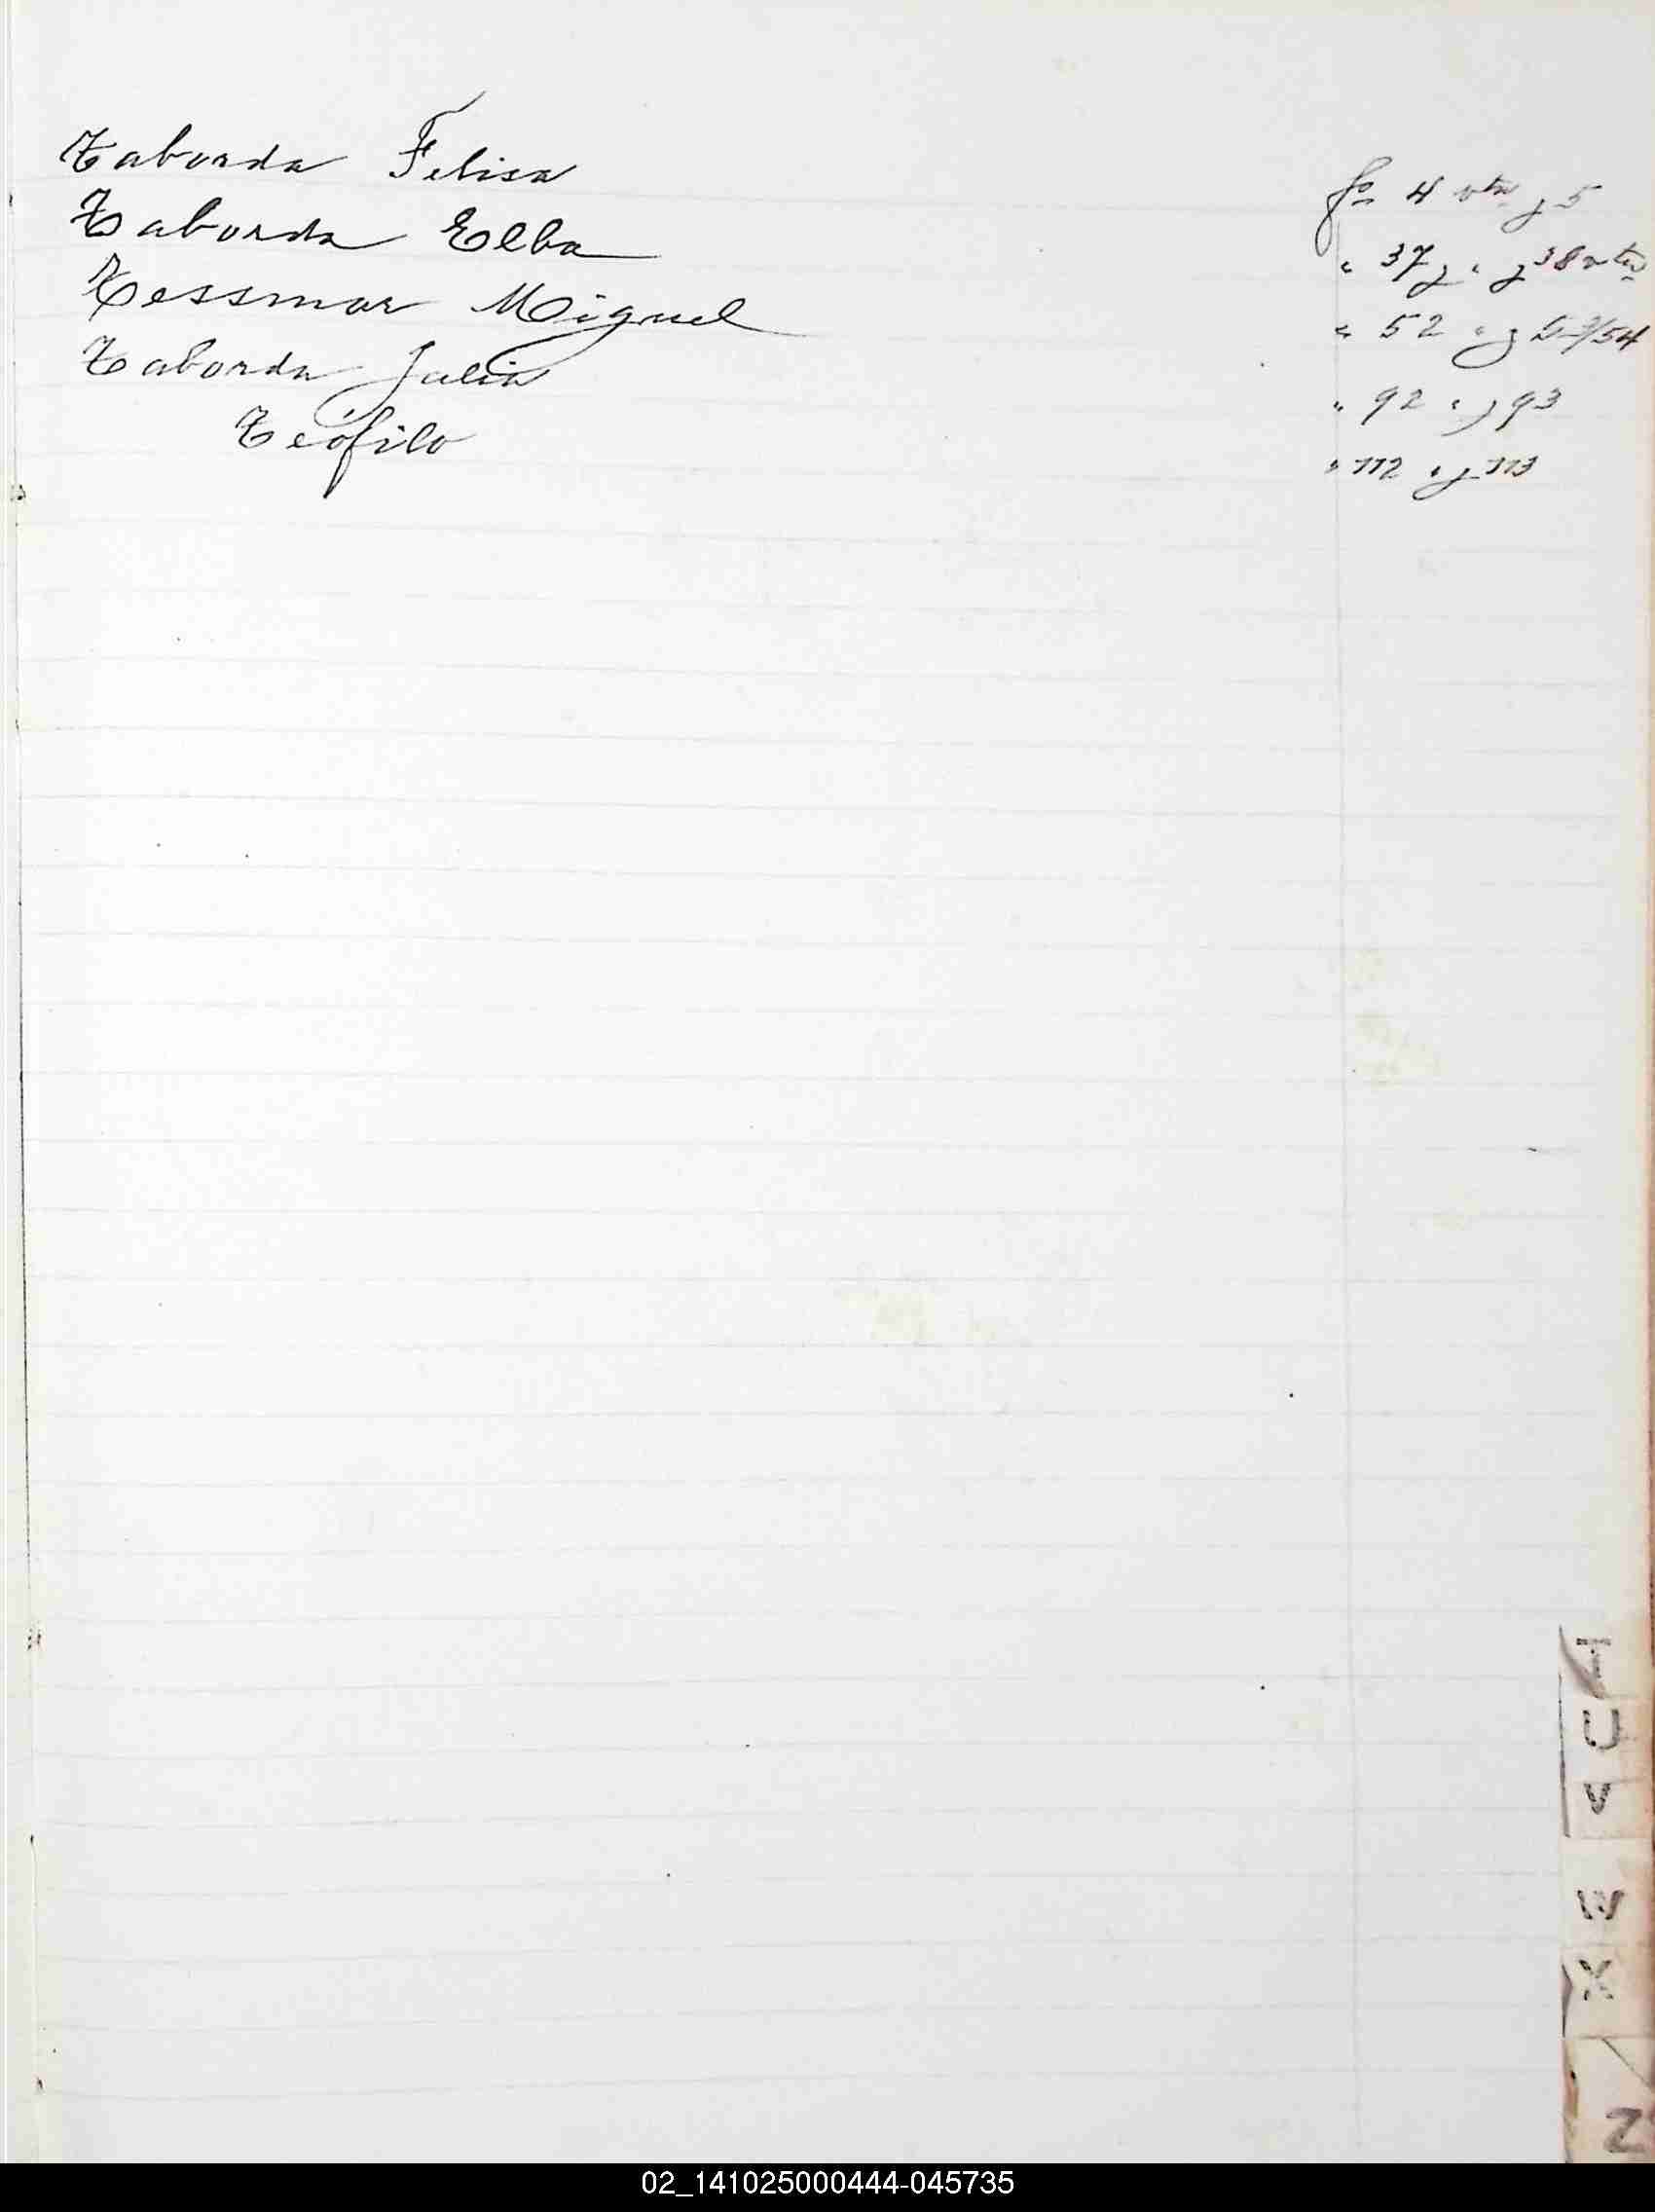 Taborda Felisa fs 4 vta y 5
Taborda Elba " 37 y " y 38 vta
Tessmar Miguel " 52 " y 53/54
Taborda Julia " 92 " y 93
Teófilo " 112 " y 113
T
U
V
W
X
Z
02_141025000444-045735